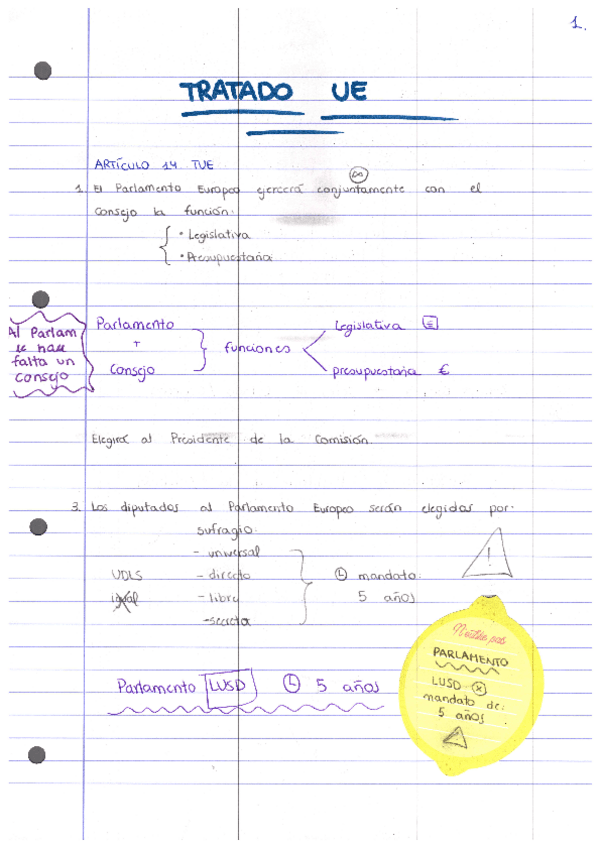 1.
TRATADO UE
ARTÍCULO 14 TUE
1. El Parlamento Europeo ejercerá conjuntamente con el
Consejo la función:
• Legislativa
• Presupuestaria
Al Parlam
le hace
falta un
consejo
Parlamento
+
Consejo
funciones
legislativa
presupuestaria €
Elegirá al Presidente de la Comisión.
3. Los diputados al Parlamento Europeo serán elegidos por:
sufragio:
- universal
UDLS - directo
igual - libre
- secreto
mandato:
5 años
!
Parlamento LUSD 5 años
N'oublie pas
PARLAMENTO
LUSD
mandato de:
5 años